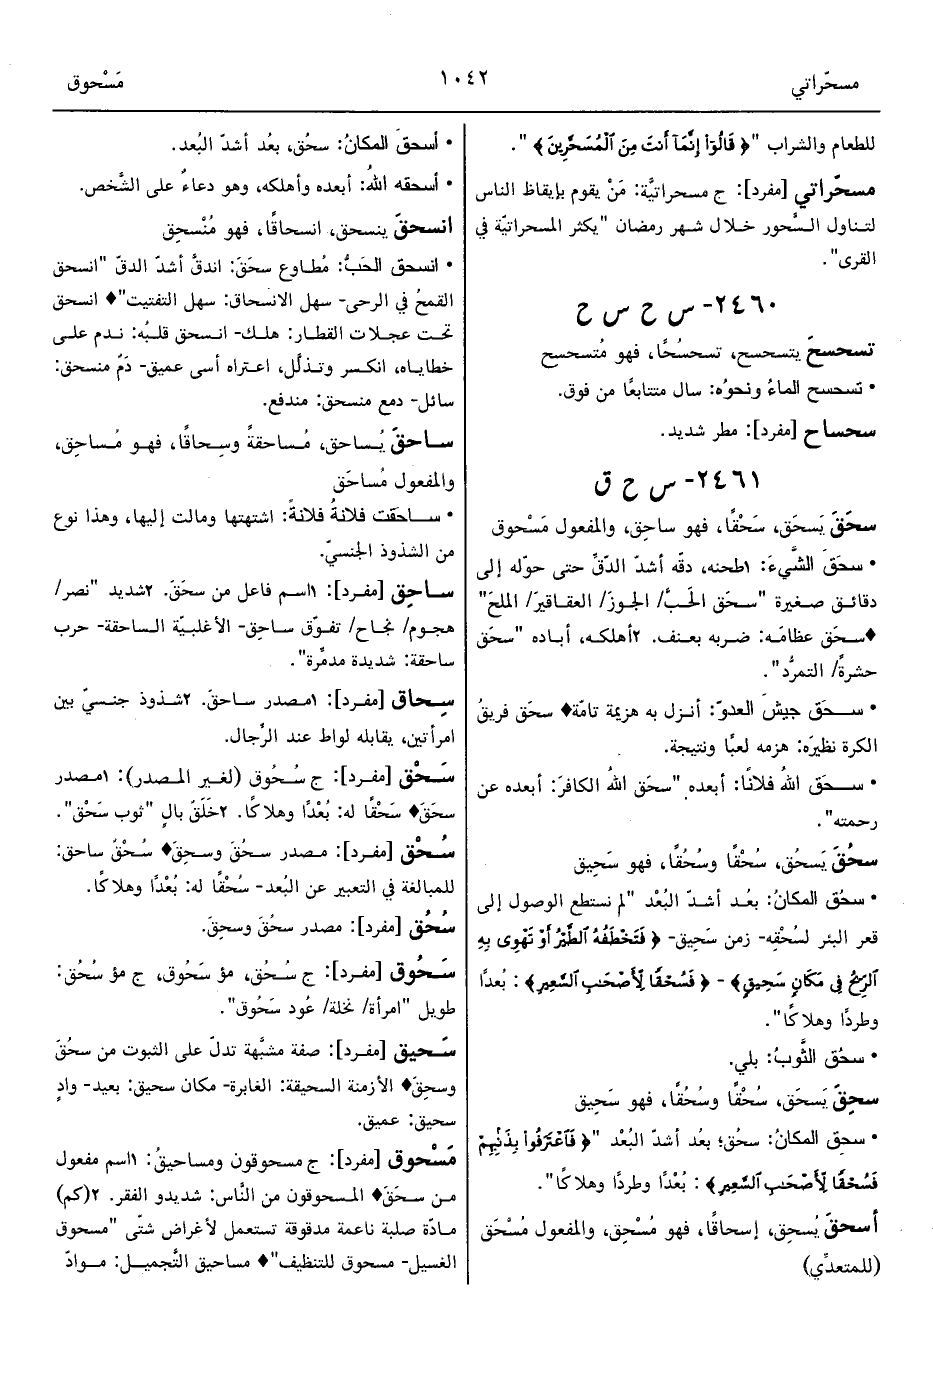 مسحّراتي
١٠٤٢
مَسْحوق
للطعام والشراب "﴿ قَالُوٓا۟ إِنَّمَآ أَنتَ مِنَ ٱلْمُسَحَّرِينَ ﴾".
مسحّراتي [مفرد]: ج مسحراتيَّة: مَنْ يقوم بإيقاظ الناس
لتناول السَّحور خلال شهر رمضان "يكثر المسحراتيّة في
القرى".
٢٤٦٠- س ح س ح
تسحسحَ يتسحسح، تسحسُحًا، فهو مُتسحسِح
• تسحسح الماءُ ونحوُه: سال متتابعًا من فوق.
سحساح [مفرد]: مطر شديد.
٢٤٦١- س ح ق
سحَقَ يَسحَق، سَحْقًا، فهو ساحِق، والمفعول مَسْحوق
• سحَق الشَّيءَ: ١طحنه، دقّه أشدّ الدّقِّ حتى حوّله إلى
دقائق صغيرة "سحَق الحَبَّ/ الجوزَ/ العقاقيرَ/ الملحَ"
♦سحَق عظامَه: ضربه بعنف. ٢أهلكه، أباده "سحَق
حشرةً/ التمرُّد".
• سحَق جيشَ العدوّ: أنزل به هزيمة تامّة♦ سحَق فريقُ
الكرة نظيرَه: هزمه لعبًا ونتيجة.
• سحَق اللهُ فلانًا: أبعده "سحَق اللهُ الكافرَ: أبعده عن
رحمته".
سحُقَ يَسحُق، سُحْقًا وسُحُقًا، فهو سَحِيق
• سحُق المكانُ: بعُد أشدّ البُعْد "لم نستطع الوصول إلى
قعر البئر لسُحْقِه- زمن سَحِيق- ﴿ فَتَخْطَفُهُ ٱلطَّيْرُ أَوْ تَهْوِى بِهِ
ٱلرِّيحُ فِى مَكَانٍ سَحِيقٍ ﴾ - ﴿ فَسُحْقًا لِّأَصْحَٰبِ ٱلسَّعِيرِ ﴾: بُعدًا
وطردًا وهلاكًا".
• سحُق الثَّوبُ: بلي.
سحِقَ يَسحَق، سُحْقًا وسُحُقًا، فهو سَحِيق
• سحِق المكانُ: سحُق؛ بعُد أشدّ البُعْد "﴿ فَٱعْتَرَفُوا۟ بِذَنۢبِهِمْ
فَسُحْقًا لِّأَصْحَٰبِ ٱلسَّعِيرِ ﴾: بُعْدًا وطردًا وهلاكًا".
أسحقَ يُسحِق، إسحاقًا، فهو مُسْحِق، والمفعول مُسْحَق
(للمتعدِّي)
• أسحقَ المكانُ: سحُق، بعُد أشدّ البُعد.
• أسحقه اللهُ: أبعده وأهلكه، وهو دعاءٌ على الشَّخص.
انسحقَ ينسحق، انسحاقًا، فهو مُنْسحِق
• انسحق الحَبُّ: مُطاوع سحَقَ: اندقَّ أشدّ الدقّ "انسحق
القمحُ في الرحى- سهل الانسحاق: سهل التفتيت"♦ انسحق
تحت عجلات القطار: هلك- انسحق قلبُه: ندم على
خطاياه، انكسر وتذلَّل، اعتراه أسى عميق- دَمٌ منسحق:
سائل- دمع منسحق: مندفع.
ساحقَ يُساحق، مُساحقةً وسِحاقًا، فهو مُساحِق،
والمفعول مُساحَق
• ساحَقت فلانةُ فلانةً: اشتهتها ومالت إليها، وهذا نوع
من الشذوذ الجنسيّ.
ساحِق [مفرد]: ١اسم فاعل من سحَقَ. ٢شديد "نصر/
هجوم/ نجاح/ تفوّق ساحِق- الأغلبيّة الساحقة- حرب
ساحقة: شديدة مدمِّرة".
سِحاق [مفرد]: ١مصدر ساحقَ. ٢شذوذ جنسيّ بين
امرأتين، يقابله لواط عند الرِّجال.
سَحْق [مفرد]: ج سُحُوق (لغير المصدر): ١مصدر
سحَقَ♦ سَحْقًا له: بُعْدًا وهلاكًا. ٢خَلَقٌ بالٍ "ثوب سَحْق".
سُحْق [مفرد]: مصدر سحُقَ وسحِقَ♦ سُحْقٌ ساحق:
للمبالغة في التعبير عن البُعد- سُحْقًا له: بُعْدًا وهلاكًا.
سُحُق [مفرد]: مصدر سحُقَ وسحِقَ.
سَحُوق [مفرد]: ج سُحُق، مؤ سَحُوق، ج مؤ سُحُق:
طويل "امرأة/ نخلة/ عُود سَحُوق".
سَحيق [مفرد]: صفة مشبَّهة تدلّ على الثبوت من سحُقَ
وسحِقَ♦ الأزمنة السحيقة: الغابرة- مكان سحيق: بعيد- وادٍ
سحيق: عميق.
مَسْحوق [مفرد]: ج مسحوقون ومساحيقُ: ١اسم مفعول
من سحَقَ♦ المسحوقون من النَّاس: شديدو الفقر. ٢(كم)
مادّة صلبة ناعمة مدقوقة تستعمل لأغراض شتّى "مسحوق
الغسيل- مسحوق للتنظيف"♦ مساحيق التَّجميل: موادّ